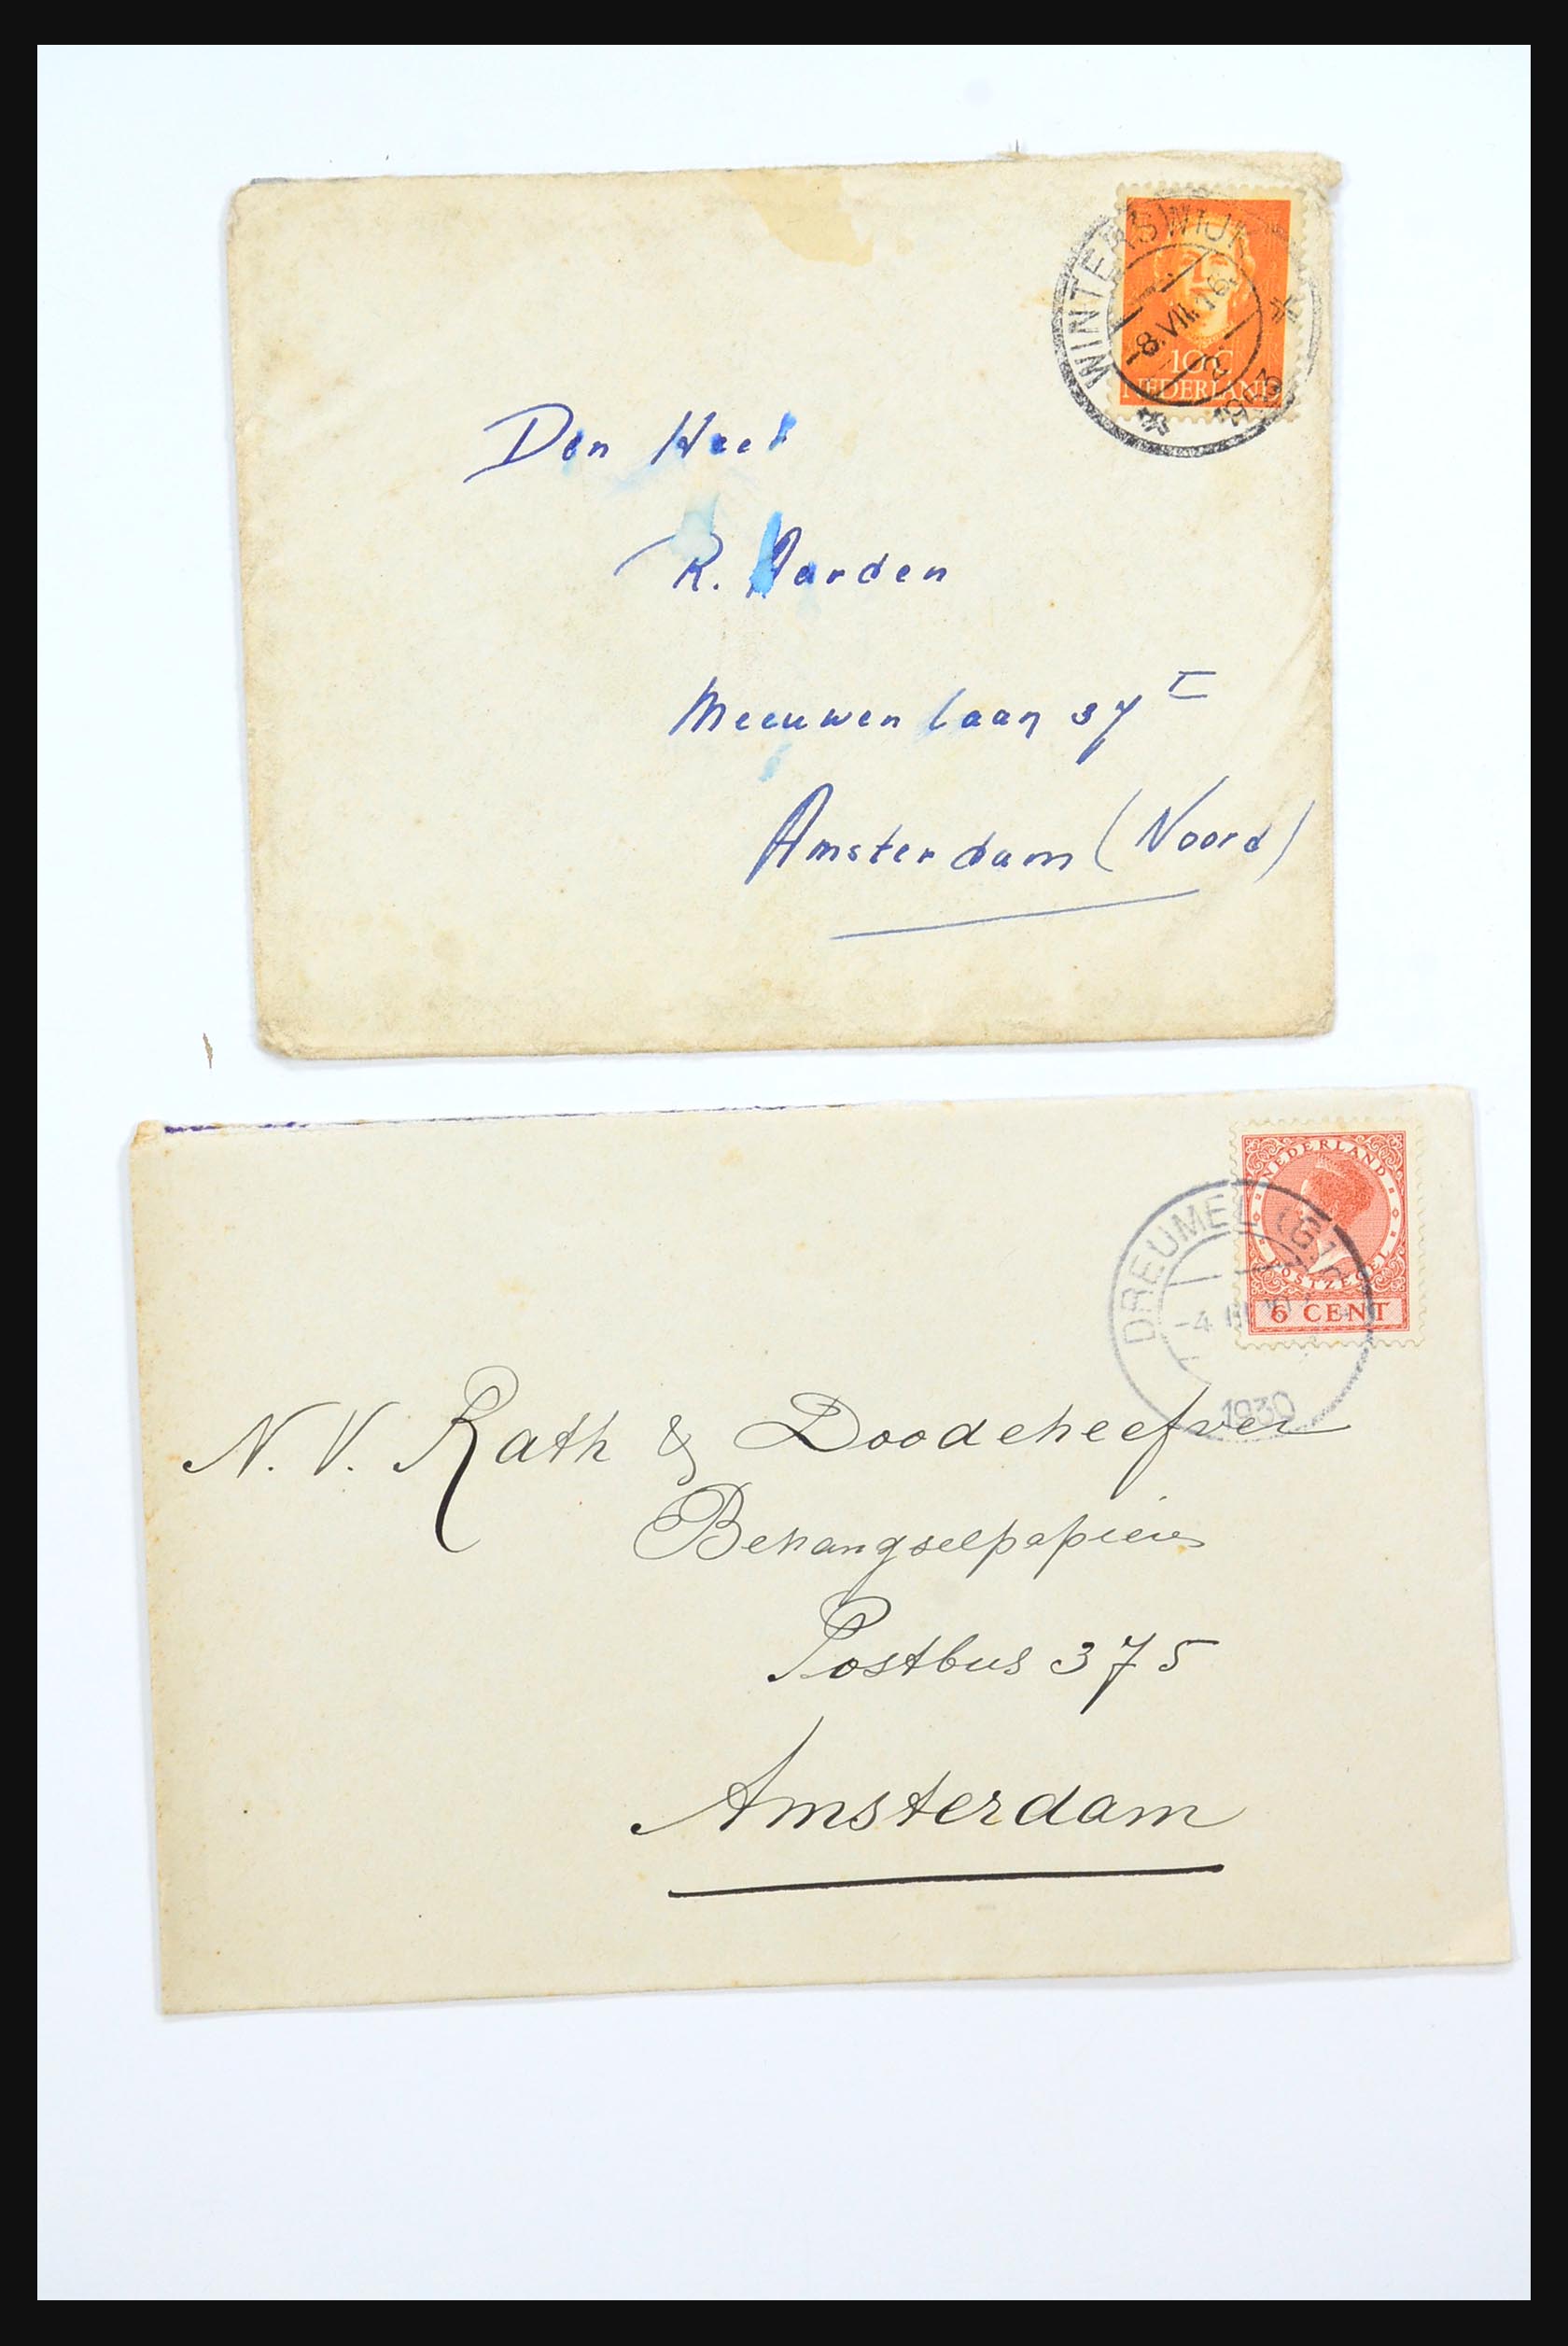 WINTERSWIJK
-8.VII.16
1953
10 C
NEDERLAND
Den Heer
R. Aarden
Meeuwenlaan 37 I
Amsterdam (Noord)
NEDERLAND
POSTZEGEL
6 CENT
DREUMEL (GLD)
-4 III
1930
N. V. Rath & Doodeheefver
Behangselpapieren
Postbus 375
Amsterdam